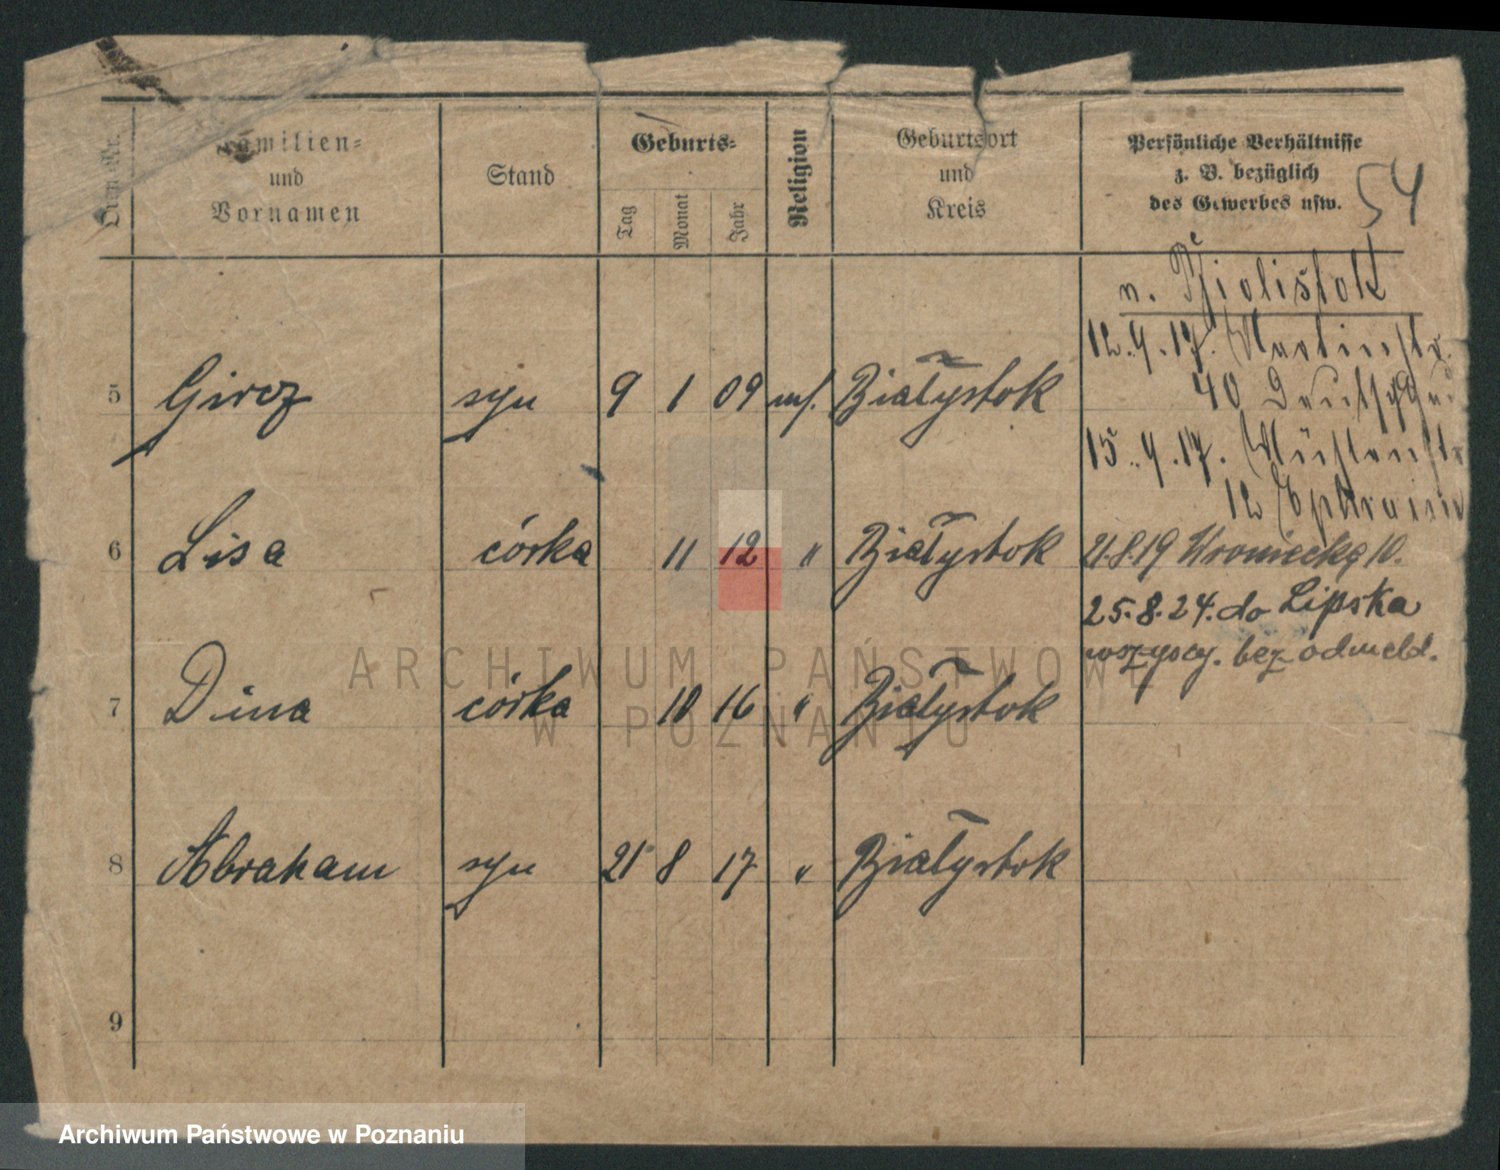 Familien-
und
Vornamen
Stand
Geburts-
Tag
Monat
Jahr
Religion
Geburtsort
und
Kreis
Persönliche Verhältnisse
z. B. bezüglich
des Gewerbes usw.
54
n. Bialistok
12.9.17. Martinstr.
40
15.9.17.
12 Ephraim
5 Gircz syn 9 1 09 mj. Białystok
6 Lisa córka 11 12 " Białystok
21.8.19 Wroniecka 10.
25.8.24. do Lipska
wszyscy. bez odmeld.
7 Dina córka 10 16 " Białystok
8 Abraham syn 21 8 17 " Białystok
9
ARCHIWUM PAŃSTWOWE
W POZNANIU
Archiwum Państwowe w Poznaniu